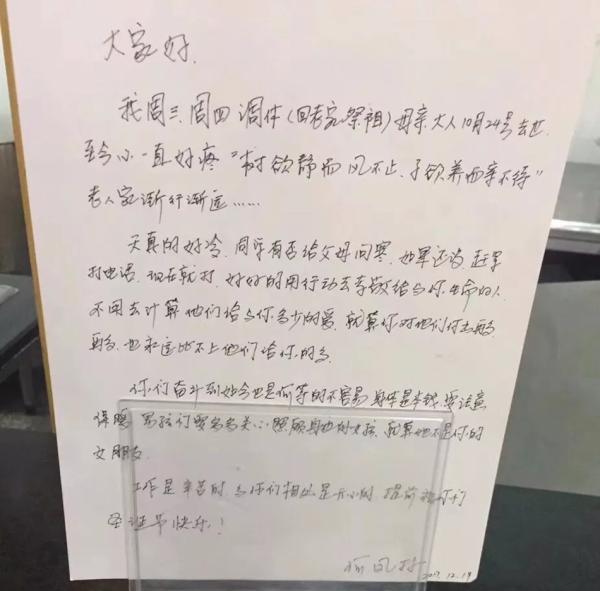 大家好.
我周三.周四调休(回老家祭祖)母亲大人10月24号去世
至今心一直好疼"树欲静而风不止.子欲养而亲不待"
老人家渐行渐远……
天真的好冷.同学有否给父母问寒.如果还没.赶紧
打电话.现在就打.好好的用行动去孝敬给与你生命的人
不用去计算他们给与你多少的爱.就算你对他们付出再多
再多.也永远比不上他们给你的多
你们奋斗到如今也是何等的不容易 身体是本钱.要注意
保暖 男孩们要多多关心照顾身边的女孩.就算她不是你的
女朋友.
工作是辛苦的.与你们相处是开心的 提前祝你们
圣诞节快乐!
2017.12.19